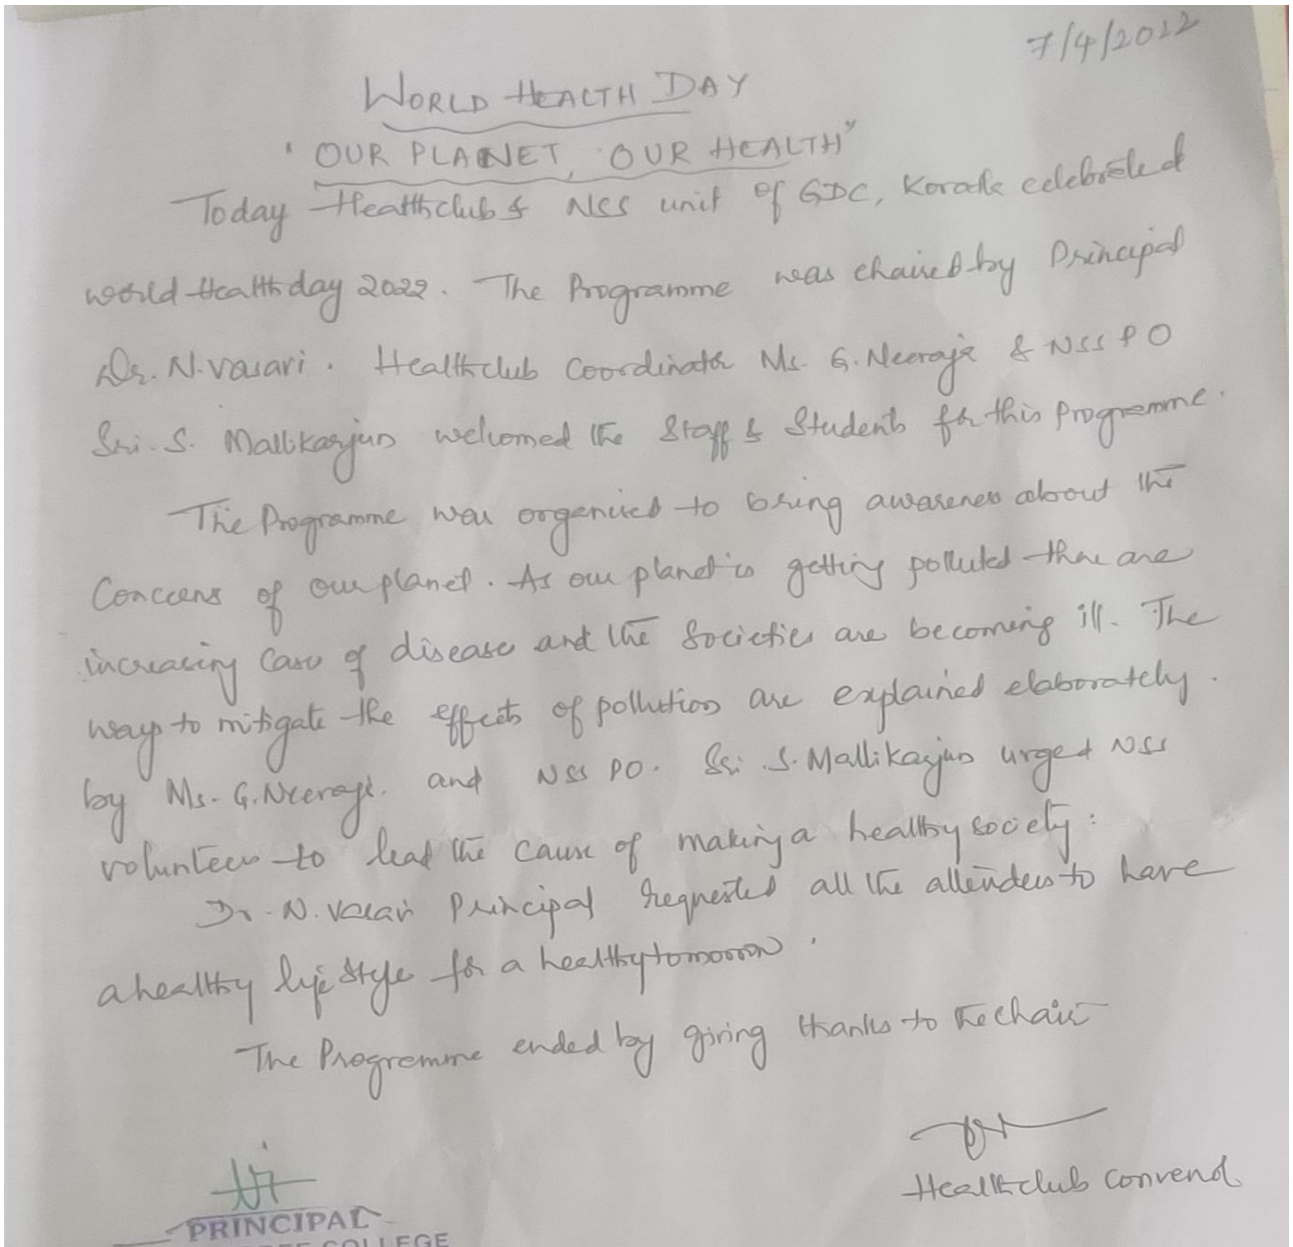 7/4/2022
WORLD HEALTH DAY
"OUR PLANET, OUR HEALTH"
Today Healthclub & NSS unit of GDC, Koratla celebrated
world Health day 2022. The Programme was chaired by Principal
Dr. N. Vasavi. Health club Coordinator Ms. G. Neeraja & NSS PO
Sri. S. Mallikarjun welcomed the Staff & Students for this programme.
The Programme was organised to bring awareness about the
Concerns of our planet. As our planet is getting polluted there are
increasing cases of disease and the Societies are becoming ill. The
ways to mitigate the effects of pollution are explained elaborately.
by Ms. G. Neeraja. and NSS PO. Sri. S. Mallikarjun urged NSS
volunteers to lead the cause of making a healthy society.
Dr. N. Vasavi Principal requested all the attenders to have
a healthy life style for a healthy tomorrow.
The Programme ended by giving thanks to the chair
Healthclub convenor
PRINCIPAL
COLLEGE